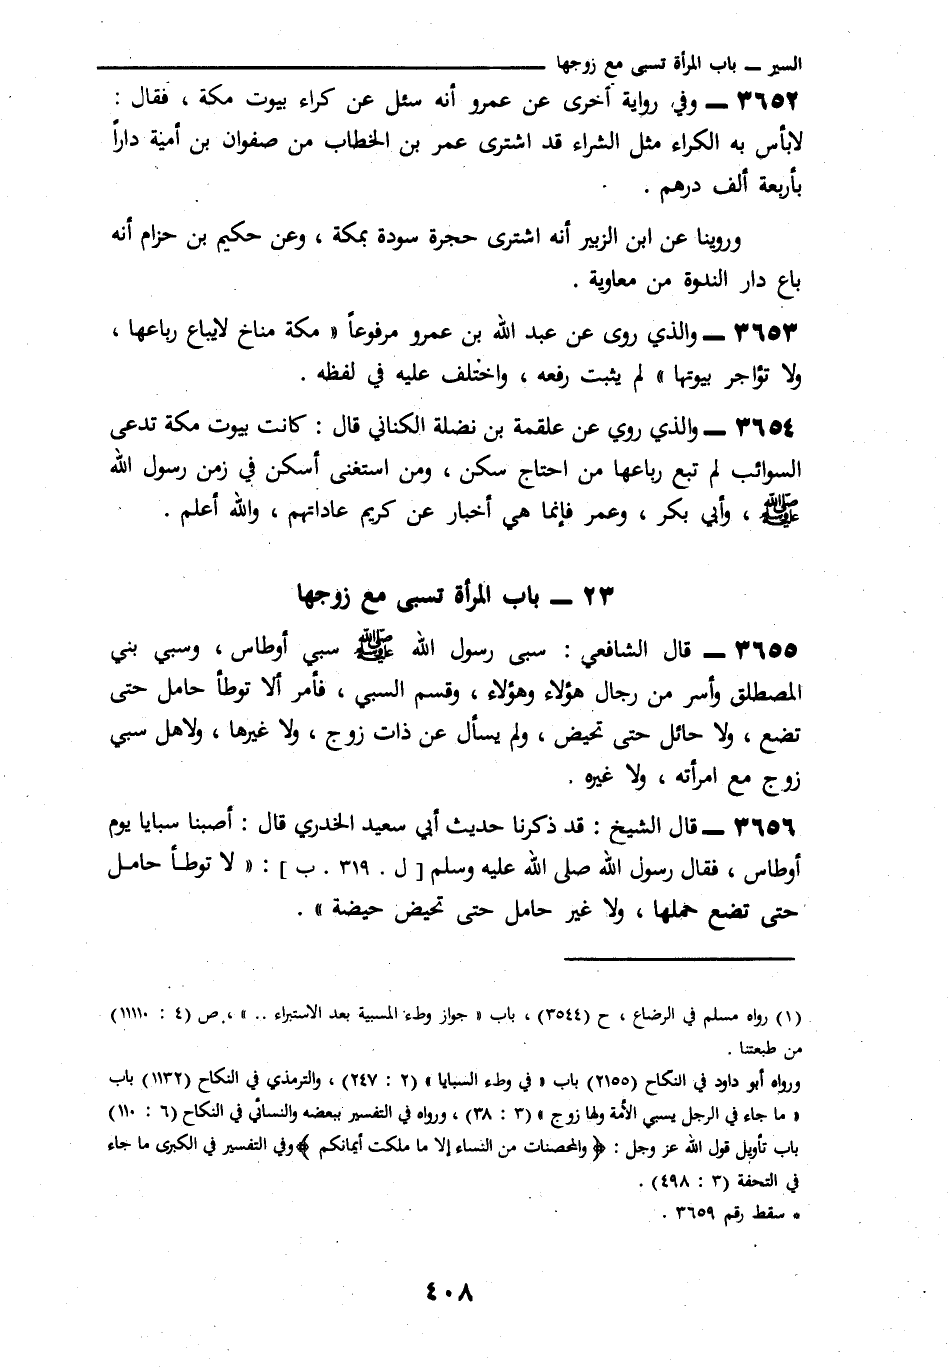 السير ـــ باب المرأة تسبى مع زوجها
٣٦٥٢ ـــ وفي رواية أخرى عن عمرو أنه سئل عن كراء بيوت مكة ، فقال :
لابأس به الكراء مثل الشراء قد اشترى عمر بن الخطاب من صفوان بن أمية داراً
بأربعة ألف درهم .
وروينا عن ابن الزبير أنه اشترى حجرة سودة بمكة ، وعن حكيم بن حزام أنه
باع دار الندوة من معاوية .
٣٦٥٣ ـــ والذي روى عن عبد الله بن عمرو مرفوعاً « مكة مناخ لايباع رباعها ،
ولا تؤاجر بيوتها » لم يثبت رفعه ، واختلف عليه في لفظه .
٣٦٥٤ ـــ والذي روي عن علقمة بن نضلة الكناني قال : كانت بيوت مكة تدعى
السوائب لم تبع رباعها من احتاج سكن ، ومن استغنى أسكن في زمن رسول الله
ﷺ ، وأبي بكر ، وعمر فإنما هي أخبار عن كريم عاداتهم ، والله أعلم .
٢٣ ـــ باب المرأة تسبى مع زوجها
٣٦٥٥ ـــ قال الشافعي : سبى رسول الله ﷺ سبي أوطاس ، وسبي بني
المصطلق وأسر من رجال هؤلاء وهؤلاء ، وقسم السبي ، فأمر ألا توطأ حامل حتى
تضع ، ولا حائل حتى تحيض ، ولم يسأل عن ذات زوج ، ولا غيرها ، ولاهل سبي
زوج مع امرأته ، ولا غيره .
٣٦٥٦ ـــ قال الشيخ : قد ذكرنا حديث أبي سعيد الخدري قال : أصبنا سبايا يوم
أوطاس ، فقال رسول الله صلى الله عليه وسلم [ ل . ٣١٩ . ب ] : « لا توطأ حامل
حتى تضع حملها ، ولا غير حامل حتى تحيض حيضة » .
(١) رواه مسلم في الرضاع ، ح (٣٥٤٤) ، باب « جواز وطء المسبية بعد الاستبراء .. » ، ص (٤ : ١١١١٠)
من طبعتنا .
ورواه أبو داود في النكاح (٢١٥٥) باب « في وطء السبايا » (٢ : ٢٤٧) ، والترمذي في النكاح (١١٣٢) باب
« ما جاء في الرجل يسبي الأمة ولها زوج » (٣ : ٣٨) ، ورواه في التفسير ببعضه والنسائي في النكاح (٦ : ١١٠)
باب تأويل قول الله عز وجل : ﴿ والمحصنات من النساء إلا ما ملكت أيمانكم ﴾ وفي التفسير في الكبرى ما جاء
في التحفة (٣ : ٤٩٨) .
* سقط رقم ٣٦٥٩ .
٤٠٨